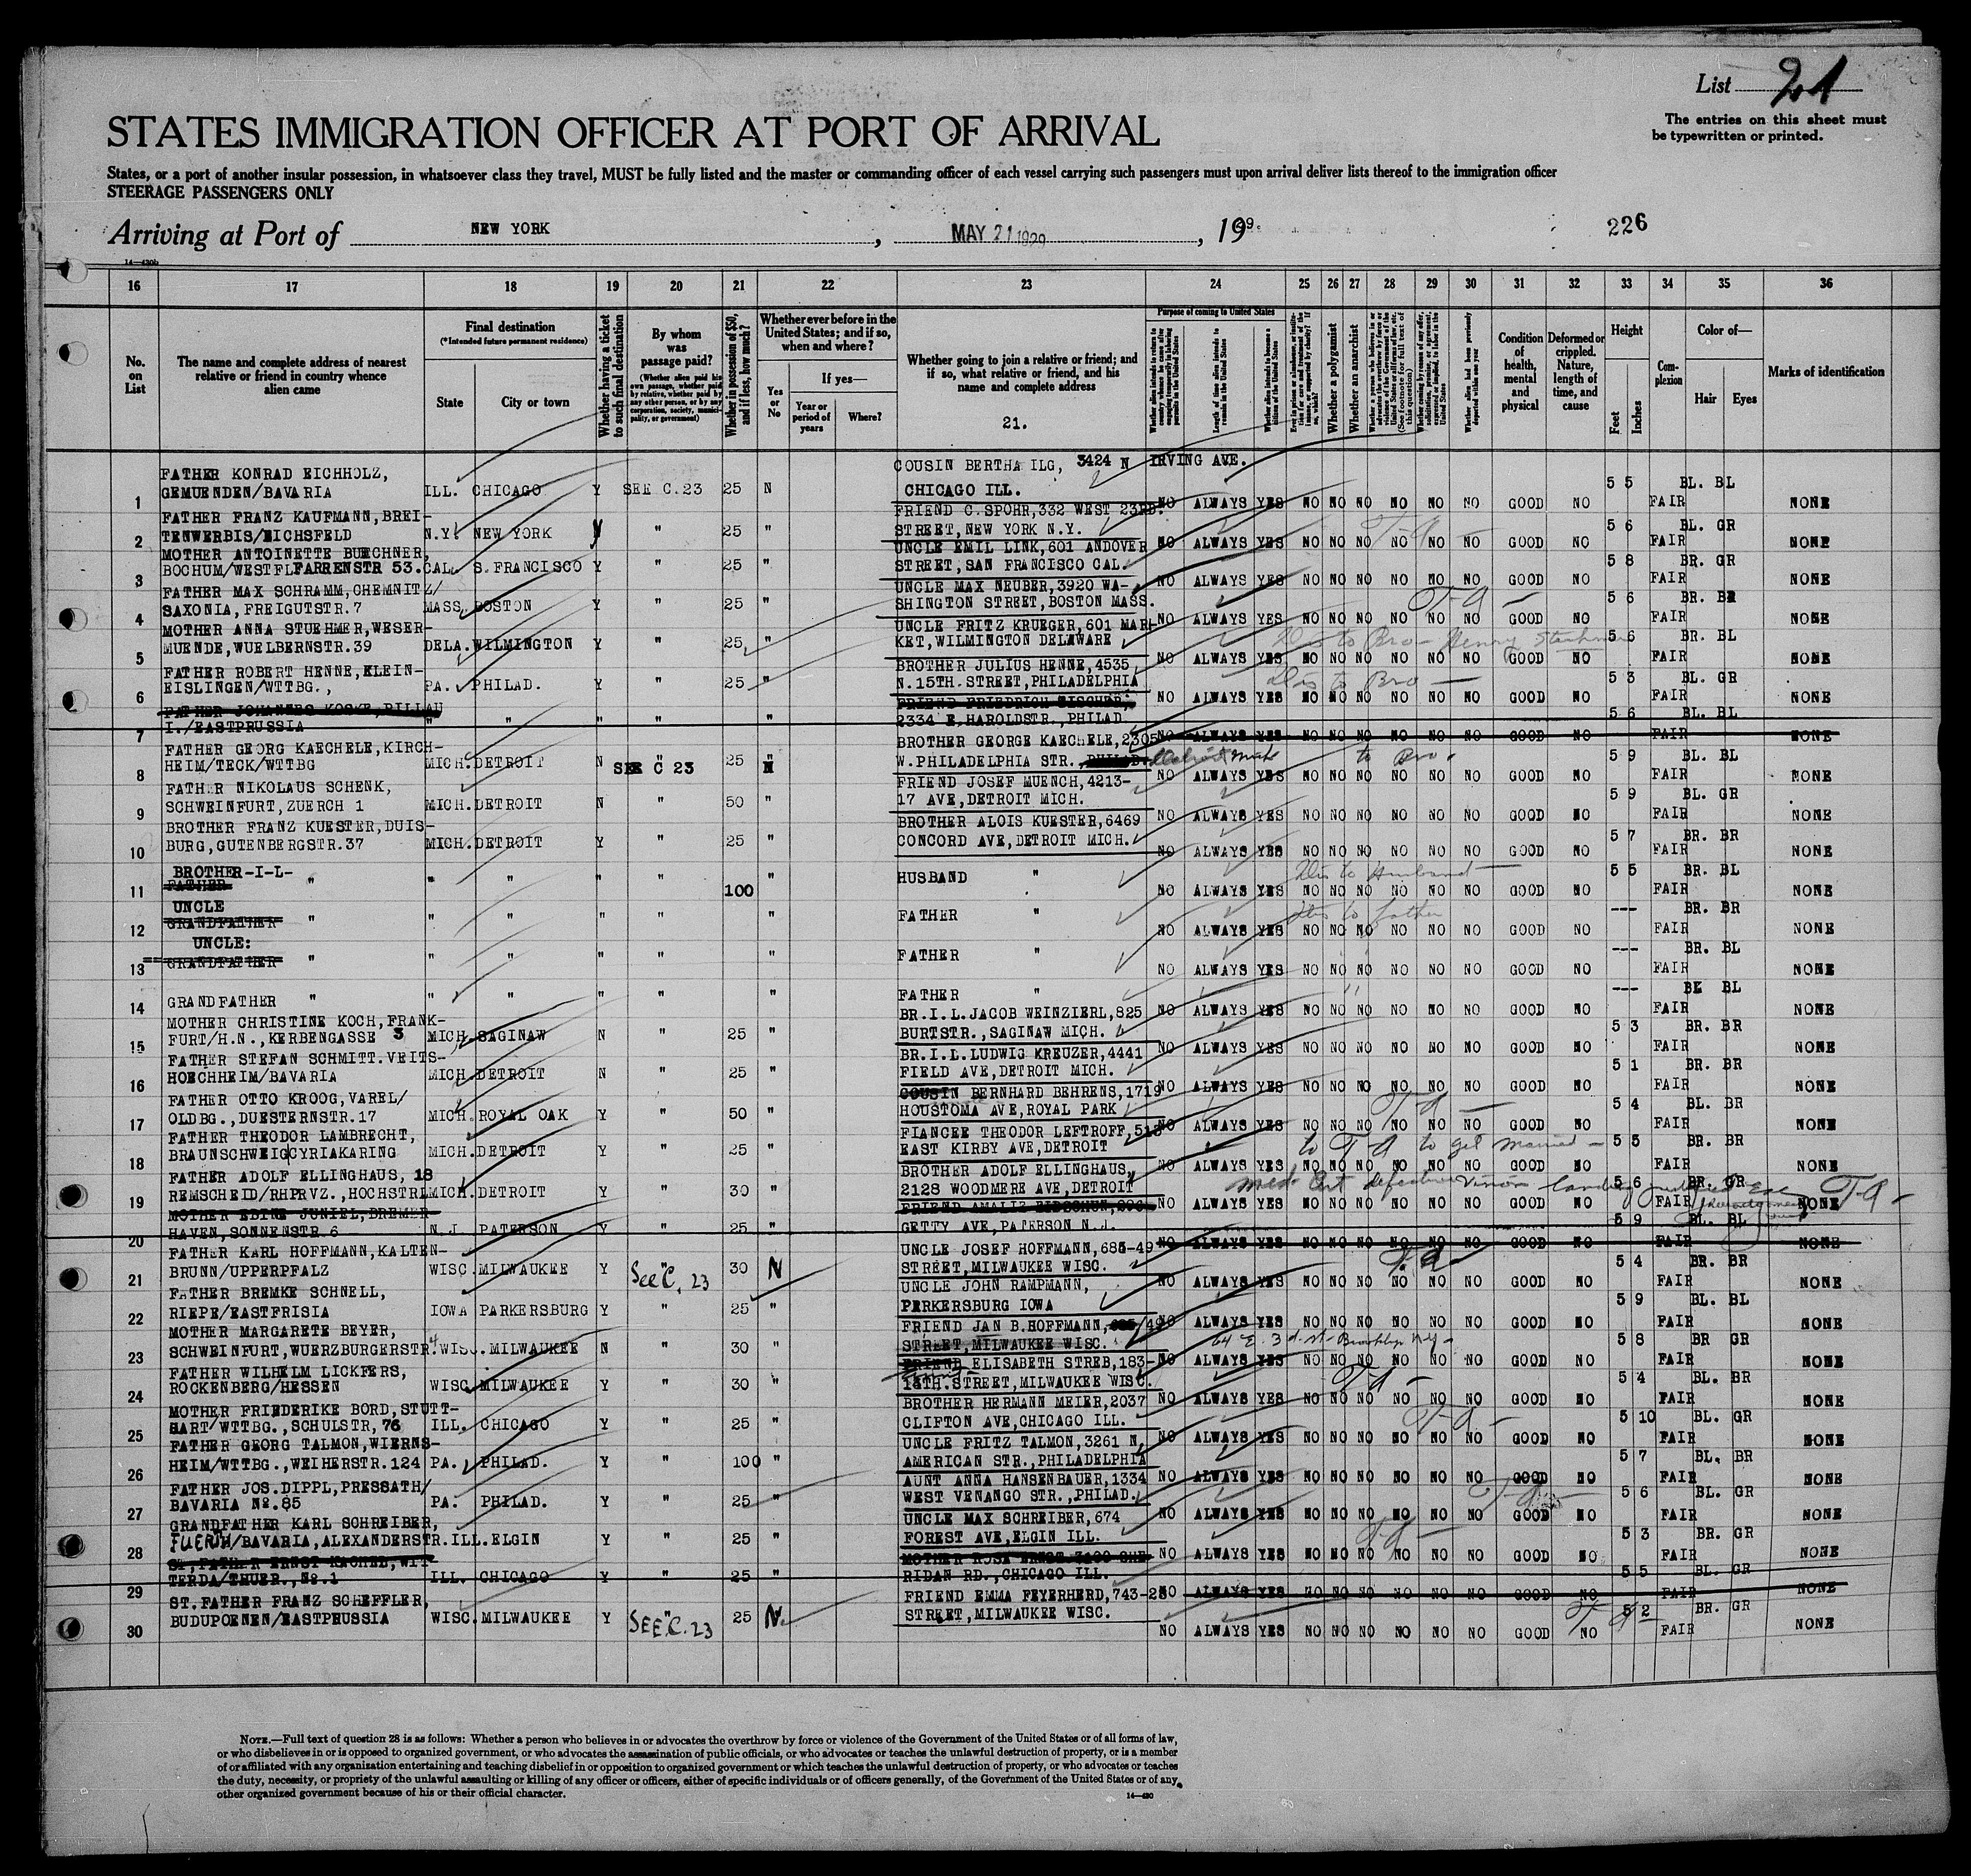 List 21
The entries on this sheet must
be typewritten or printed.
STATES IMMIGRATION OFFICER AT PORT OF ARRIVAL
States, or a port of another insular possession, in whatsoever class they travel, MUST be fully listed and the master or commanding officer of each vessel carrying such passengers must upon arrival deliver lists thereof to the immigration officer
STEERAGE PASSENGERS ONLY
Arriving at Port of NEW YORK, MAY 21 1929, 19
226
14—430b
16 17 18 19 20 21 22 23 24 25 26 27 28 29 30 31 32 33 34 35 36
No. on List
The name and complete address of nearest relative or friend in country whence alien came
Final destination
(*Intended future permanent residence)
State
City or town
Whether having a ticket to such final destination
By whom was passage paid?
(Whether alien paid his own passage, whether paid by relative, whether paid by any other person, or by any corporation, society, municipality, or government)
Whether in possession of $50, and if less, how much?
Whether ever before in the United States; and if so, when and where?
Yes or No
If yes—
Year or period of years
Where?
Whether going to join a relative or friend; and if so, what relative or friend, and his name and complete address
21.
Purpose of coming to United States
Length of time alien intends to remain in the United States
Whether alien intends to become a citizen of the United States
Whether a polygamist
Whether an anarchist
Condition of health, mental and physical
Deformed or crippled. Nature, length of time, and cause
Height
Feet
Inches
Complexion
Color of—
Hair
Eyes
Marks of identification
1 FATHER KONRAD EICHHOLZ, GEMUENDEN/BAVARIA ILL. CHICAGO Y SEE C.23 25 N COUSIN BERTHA ILG, 3424 N IRVING AVE. CHICAGO ILL. NO ALWAYS YES NO NO NO NO NO NO GOOD NO 5 5 FAIR BL. BL NONE
2 FATHER FRANZ KAUFMANN, BREI-TENWERBIS/EICHSFELD N.Y. NEW YORK Y " 25 " FRIEND C.SPOHR,332 WEST 23RD. STREET,NEW YORK N.Y. NO ALWAYS YES NO NO NO NO NO NO GOOD NO 5 6 FAIR BL. GR NONE
3 MOTHER ANTOINETTE BUECHNER, BOCHUM/WESTFL FARRENSTR 53. CAL. S.FRANCISCO Y " 25 " UNCLE EMIL LINK,601 ANDOVER STREET,SAN FRANCISCO CAL. NO ALWAYS YES NO NO NO NO NO NO GOOD NO 5 8 FAIR BR. GR NONE
4 FATHER MAX SCHRAMM,CHEMNITZ/ SAXONIA,FREIGUTSTR.7 MASS. BOSTON Y " 25 " UNCLE MAX NEUBER,3920 WA-SHINGTON STREET,BOSTON MASS. NO ALWAYS YES NO NO NO NO NO NO GOOD NO 5 6 FAIR BR. BR NONE
5 MOTHER ANNA STUEHMER,WESER-MUENDE,WUELBERNSTR.39 DELA. WILMINGTON Y " 25 " UNCLE FRITZ KRUEGER,601 MAR-KET,WILMINGTON DELAWARE NO ALWAYS YES NO NO NO NO NO NO GOOD NO 5 6 FAIR BR. BL NONE
6 FATHER ROBERT HENNE,KLEIN-EISLINGEN/WTTBG., PA. PHILAD. Y " 25 " BROTHER JULIUS HENNE,4535 N.15TH.STREET,PHILADELPHIA NO ALWAYS YES NO NO NO NO NO NO GOOD NO 5 3 FAIR BL. GR NONE
7 FATHER JOHANNES KOSKE,PILLAU I./EASTPRUSSIA " " " " " FRIEND FRIEDRICH 2334 E.HAROLDSTR.,PHILAD NO ALWAYS YES NO NO NO NO NO NO GOOD NO 5 6 FAIR BL. BL NONE
8 FATHER GEORG KAECHELE,KIRCH-HEIM/TECK/WTTBG MICH. DETROIT N SEE C 23 25 N BROTHER GEORGE KAECHELE,2305 W.PHILADELPHIA STR. PHILAD. Detroit Mich to Bro. NO ALWAYS YES NO NO NO NO NO NO GOOD NO 5 9 FAIR BL. BL NONE
9 FATHER NIKOLAUS SCHENK, SCHWEINFURT,ZUERCH 1 MICH. DETROIT N " 50 " FRIEND JOSEF MUENCH,4213-17 AVE,DETROIT MICH. NO ALWAYS YES NO NO NO NO NO NO GOOD NO 5 9 FAIR BL. GR NONE
10 BROTHER FRANZ KUESTER,DUIS-BURG,GUTENBERGSTR.37 MICH. DETROIT Y " 25 " BROTHER ALOIS KUESTER,6469 CONCORD AVE,DETROIT MICH. NO ALWAYS YES NO NO NO NO NO NO GOOD NO 5 7 FAIR BR. BR NONE
11 BROTHER-I-L- FATHER " " " " " 100 " HUSBAND " NO ALWAYS YES NO NO NO NO NO NO GOOD NO 5 5 FAIR BR. BL NONE
12 UNCLE GRANDFATHER " " " " " " FATHER " NO ALWAYS YES NO NO NO NO NO NO GOOD NO --- FAIR BR. BR NONE
13 UNCLE: GRANDFATHER " " " " " " FATHER " NO ALWAYS YES NO NO NO NO NO NO GOOD NO --- FAIR BR. BL NONE
14 GRANDFATHER " " " " " " FATHER " NO ALWAYS YES NO NO NO NO NO NO GOOD NO --- FAIR BL NONE
15 MOTHER CHRISTINE KOCH,FRANK-FURT/H.N.,KERBENGASSE 3 MICH. SAGINAW N " 25 " BR.I.L.JACOB WEINZIERL,825 BURTSTR.,SAGINAW MICH. NO ALWAYS YES NO NO NO NO NO NO GOOD NO 5 3 FAIR BR. BR NONE
16 FATHER STEFAN SCHMITT.VEITS-HOECHHEIM/BAVARIA MICH. DETROIT N " 25 " BR.I.L.LUDWIG KREUZER,4441 FIELD AVE,DETROIT MICH. NO ALWAYS YES NO NO NO NO NO NO GOOD NO 5 1 FAIR BR. BR NONE
17 FATHER OTTO KROOG,VAREL/ OLDBG.,DUESTERNSTR.17 MICH. ROYAL OAK Y " 50 " COUSIN BERNHARD BEHRENS,1719 HOUSTOMA AVE,ROYAL PARK NO ALWAYS YES NO NO NO NO NO NO GOOD NO 5 4 FAIR BL. BR NONE
18 FATHER THEODOR LAMBRECHT, BRAUNSCHWEIG CYRIAKARING MICH. DETROIT Y " 25 " FIANCEE THEODOR LEFTROFF,513 EAST KIRBY AVE,DETROIT to T-A to get married NO ALWAYS YES NO NO NO NO NO NO GOOD NO 5 5 FAIR BR. BR NONE
19 FATHER ADOLF ELLINGHAUS, 18 REMSCHEID/RHPRVZ.,HOCHSTR MICH. DETROIT Y " 30 " BROTHER ADOLF ELLINGHAUS, 2128 WOODMERE AVE,DETROIT Med. Cert defective vision T-A NO ALWAYS YES NO NO NO NO NO NO GOOD NO 5 6 FAIR BR. GR NONE
20 MOTHER EDINE JUNIEL,BREMER-HAVEN,SONNENSTR.6 N.J. PATERSON Y " 25 " FRIEND AMALIE GETTY AVE,PATERSON N.J. NO ALWAYS YES NO NO NO NO NO NO GOOD NO 5 9 FAIR BL. BL NONE
21 FATHER KARL HOFFMANN,KALTEN-BRUNN/UPPERPFALZ WISC. MILWAUKEE Y See C. 23 30 N UNCLE JOSEF HOFFMANN,685-49 STREET,MILWAUKEE WISC. T.A NO ALWAYS YES NO NO NO NO NO NO GOOD NO 5 4 FAIR BR. BR NONE
22 FATHER BREMKE SCHNELL, RIEPE/EASTFRISIA IOWA PARKERSBURG Y " 25 " UNCLE JOHN RAMPMANN, PERKERSBURG IOWA NO ALWAYS YES NO NO NO NO NO NO GOOD NO 5 9 FAIR BL. BL NONE
23 MOTHER MARGARETE BEYER, SCHWEINFURT,WUERZBURGERSTR. 4 WISC. MILWAUKEE N " 30 " FRIEND JAN B.HOFFMANN,685/49 STREET,MILWAUKEE WISC. 64 E. 3d. st Brooklyn N.Y. NO ALWAYS YES NO NO NO NO NO NO GOOD NO 5 8 FAIR BR GR NONE
24 FATHER WILHELM LICKFERS, ROCKENBERG/HESSEN WISC. MILWAUKEE Y " 30 " FRIEND ELISABETH STREB,183-14TH.STREET,MILWAUKEE WISC. T-A NO ALWAYS YES NO NO NO NO NO NO GOOD NO 5 4 FAIR BL. BR NONE
25 MOTHER FRIEDERIKE BORD,STUTT-GART/WTTBG.,SCHULSTR,76 ILL. CHICAGO Y " 25 " BROTHER HERMANN MEIER,2037 CLIFTON AVE,CHICAGO ILL. T-A NO ALWAYS YES NO NO NO NO NO NO GOOD NO 5 10 FAIR BL. GR NONE
26 FATHER GEORG TALMON,WIERNS-HEIM/WTTBG.,WEIHERSTR.124 PA. PHILAD. Y " 100 " UNCLE FRITZ TALMON,3261 N. AMERICAN STR.,PHILADELPHIA NO ALWAYS YES NO NO NO NO NO NO GOOD NO 5 7 FAIR BL. BR NONE
27 FATHER JOS.DIPPL,PRESSATH/ BAVARIA No.85 PA. PHILAD. Y " 25 " AUNT ANNA HANSENBAUER,1334 WEST VENANGO STR.,PHILAD. NO ALWAYS YES NO NO NO NO NO NO GOOD NO 5 6 FAIR BL. GR NONE
28 GRANDFATHER KARL SCHREIBER, FUERTH/BAVARIA,ALEXANDERSTR. ILL. ELGIN Y " 25 " UNCLE MAX SCHREIBER,674 FOREST AVE,ELGIN ILL. T-A NO ALWAYS YES NO NO NO NO NO NO GOOD NO 5 3 FAIR BR. GR NONE
29 ST,FATHER ERNST KACHEL,WIT-TERDA/THUER.,No.1 ILL. CHICAGO Y " 25 " MOTHER ROSA ERNST.7100 SHE-RIDAN RD.,CHICAGO ILL. NO ALWAYS YES NO NO NO NO NO NO GOOD NO 5 5 FAIR BL. GR NONE
30 ST.FATHER FRANZ SCHEFFLER, BUDUPOENEN/EASTPRUSSIA WISC. MILWAUKEE Y SEE C. 23 25 N. FRIEND EMMA FEYERHERD,743-28 STREET,MILWAUKEE WISC. T A NO ALWAYS YES NO NO NO NO NO NO GOOD NO 5 2 FAIR BR. GR NONE
NOTE.—Full text of question 28 is as follows: Whether a person who believes in or advocates the overthrow by force or violence of the Government of the United States or of all forms of law,
or who disbelieves in or is opposed to organized government, or who advocates the assassination of public officials, or who advocates or teaches the unlawful destruction of property, or is a member
of or affiliated with any organization entertaining and teaching disbelief in or opposition to organized government or which teaches the unlawful destruction of property, or who advocates or teaches
the duty, necessity, or propriety of the unlawful assaulting or killing of any officer or officers, either of specific individuals or of officers generally, of the Government of the United States or of any
other organized government because of his or their official character.
14—430